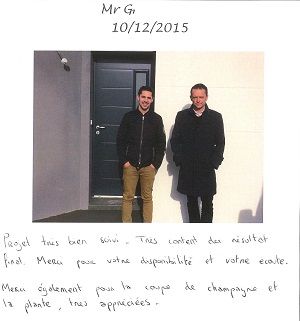 Mr G.
10/12/2015
Projet très bien suivi. Très content du résultat
final. Merci pour votre disponibilité et votre écoute.
Merci également pour la coupe de champagne et
la plante, très appréciées.